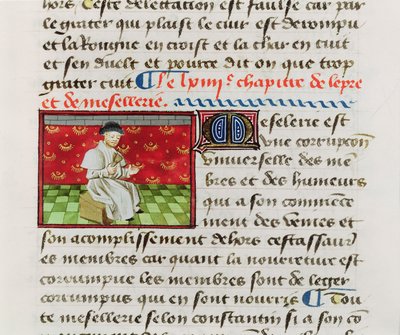 hors Ceste delectation est faulse car par
le grater qui plaist le cuir est derompu
et la Rougne en croist et la char en cuit
et sen deult et pource dit on que trop
grater cuit Le lviiiiᵉ chapitre de lepre
et de mesellerie.
Meselerie est
vne corrupcion
vniuerselle des mem
bres et des humeurs
qui a son commence
ment des ventres et
son acomplissement dehors cest assauoir
es membres car quant la nourreture est
corrumpue les membres sont de leger
corrumpus qui en sont nourris Tou
te mesellerie selon constantin si a son co